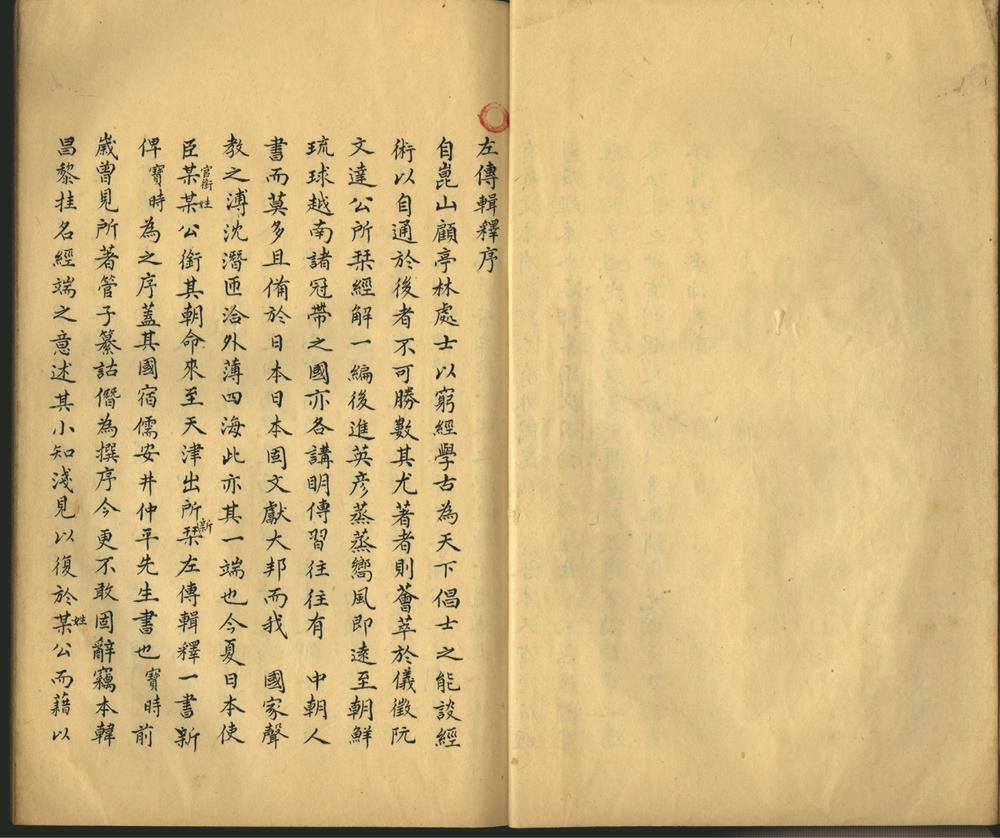 左傳輯釋序
自崑山顧亭林處士以窮經學古為天下倡士之能談經
術以自通於後者不可勝數其尤著者則薈萃於儀徵阮
文達公所栞經解一編後進英彥蒸蒸嚮風即遠至朝鮮
琉球越南諸冠帶之國亦各講明傳習往往有　中朝人
書而莫多且備於日本日本固文獻大邦而我　國家聲
教之溥沈潛匝洽外薄四海此亦其一端也今夏日本使
臣某官銜某姓公銜其朝命來至天津出所新栞左傳輯釋一書新
俾寶時為之序蓋其國宿儒安井仲平先生書也寶時前
歲曾見所著管子纂詁僭為撰序今更不敢固辭竊本韓
昌黎挂名經端之意述其小知淺見以復於某姓公而藉以